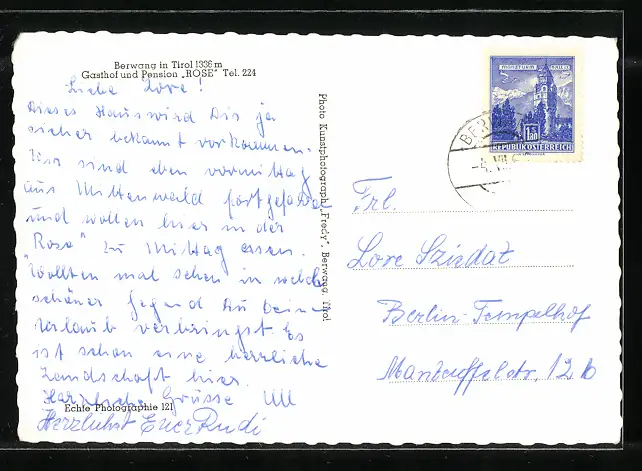 Berwang in Tirol 1336 m
Gasthof und Pension „ROSE" Tel. 224
Liebe Lore!
Dieses Haus wird Dir ja
sicher bekannt vorkommen.
Wir sind eben vormittag
aus Mittenwald fortgefahren
und wollen hier in der
„Rose" zu Mittag essen.
Wollten mal sehen in welch
schöner Gegend Du Deinen
Urlaub verbringst. Es
ist schon eine herrliche
Landschaft hier.
Herzliche Grüsse
Echte Photographie 121
Herzlichst Euer Rudi
Photo Kunstphotograph „Fredy", Berwang, Tirol
MÜNZTURM HALL
1.80
REPUBLIK ÖSTERREICH
BER
Frl.
Lore Szindat
Berlin-Tempelhof
Manteuffelstr. 12b